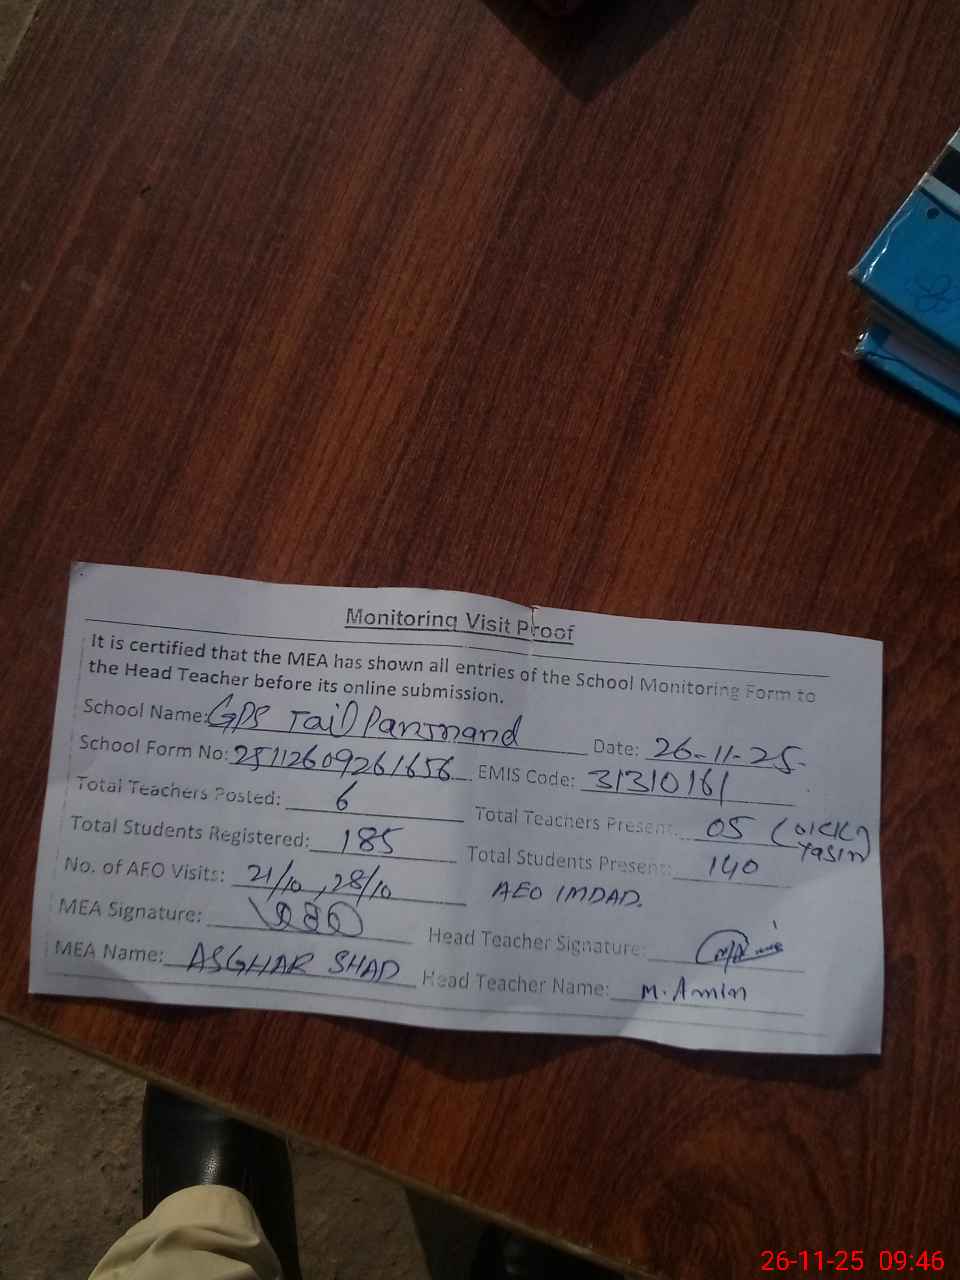 Monitoring Visit Proof
It is certified that the MEA has shown all entries of the School Monitoring Form to
the Head Teacher before its online submission.
School Name: GPS Tail Panjnand Date: 26-11-25.
School Form No: 25112609261656 EMIS Code: 31310161
Total Teachers Posted: 6 Total Teachers Present: 05 (
Yasin
Total Students Registered: 185 Total Students Present: 140
No. of AEO Visits: 21/10, 28/10 AEO IMDAD.
MEA Signature: Head Teacher Signature:
MEA Name: ASGHAR SHAD Head Teacher Name: M. Amin
26-11-25 09:46